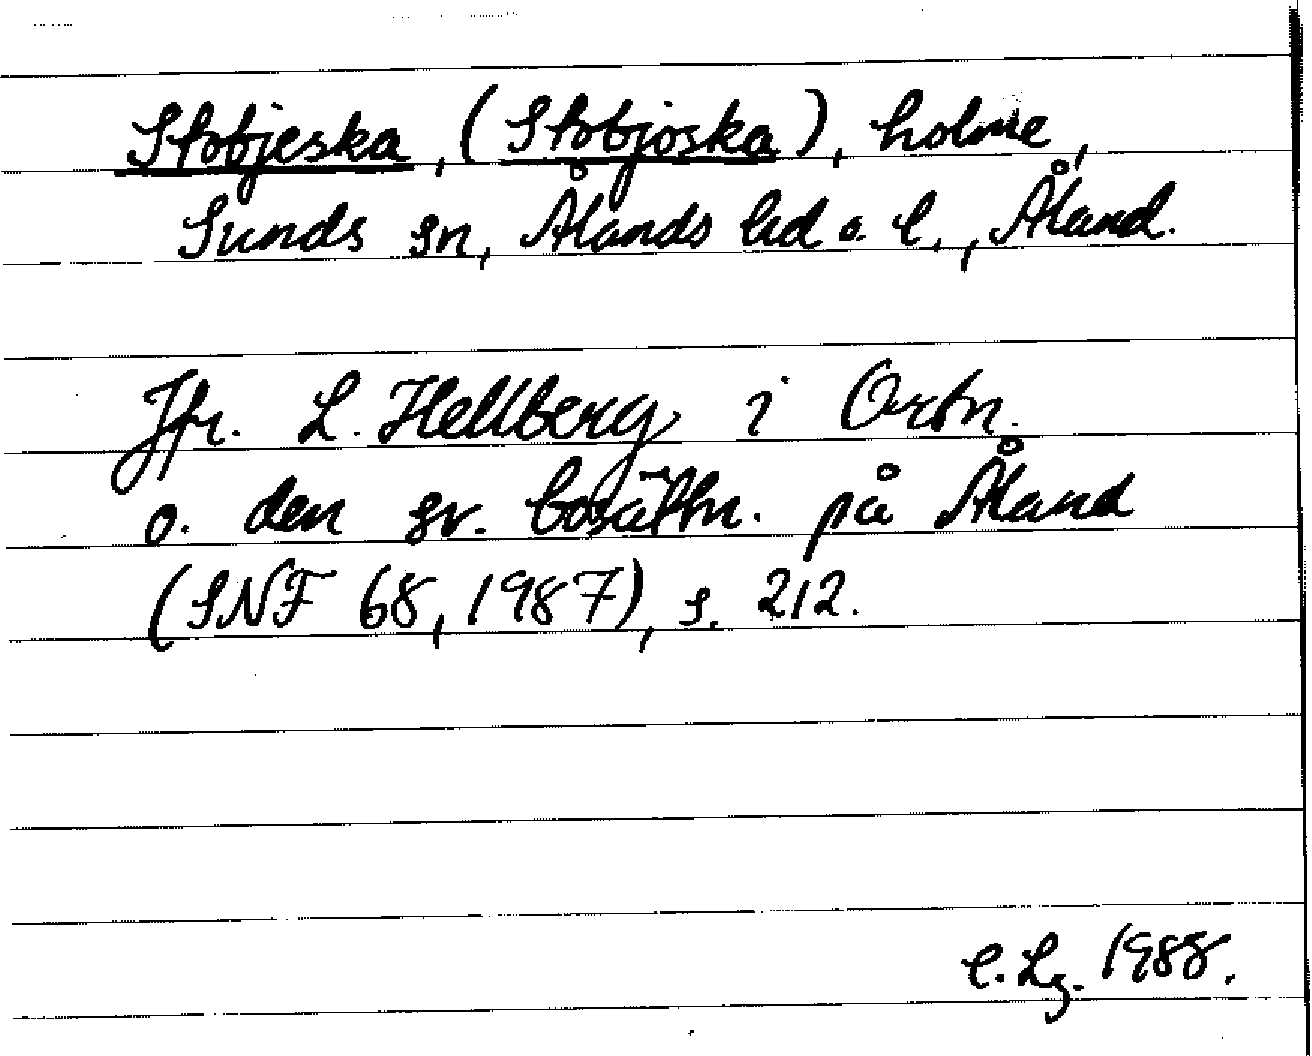 Stobjeska, (Stobjoska), holme,
Sunds sn, Ålands hd o. l., Åland.
Jfr. L. Hellberg i Ortn.
o. den sv. bosättn. på Åland
(SNF 68, 1987), s. 212.
C. Lg. 1988.